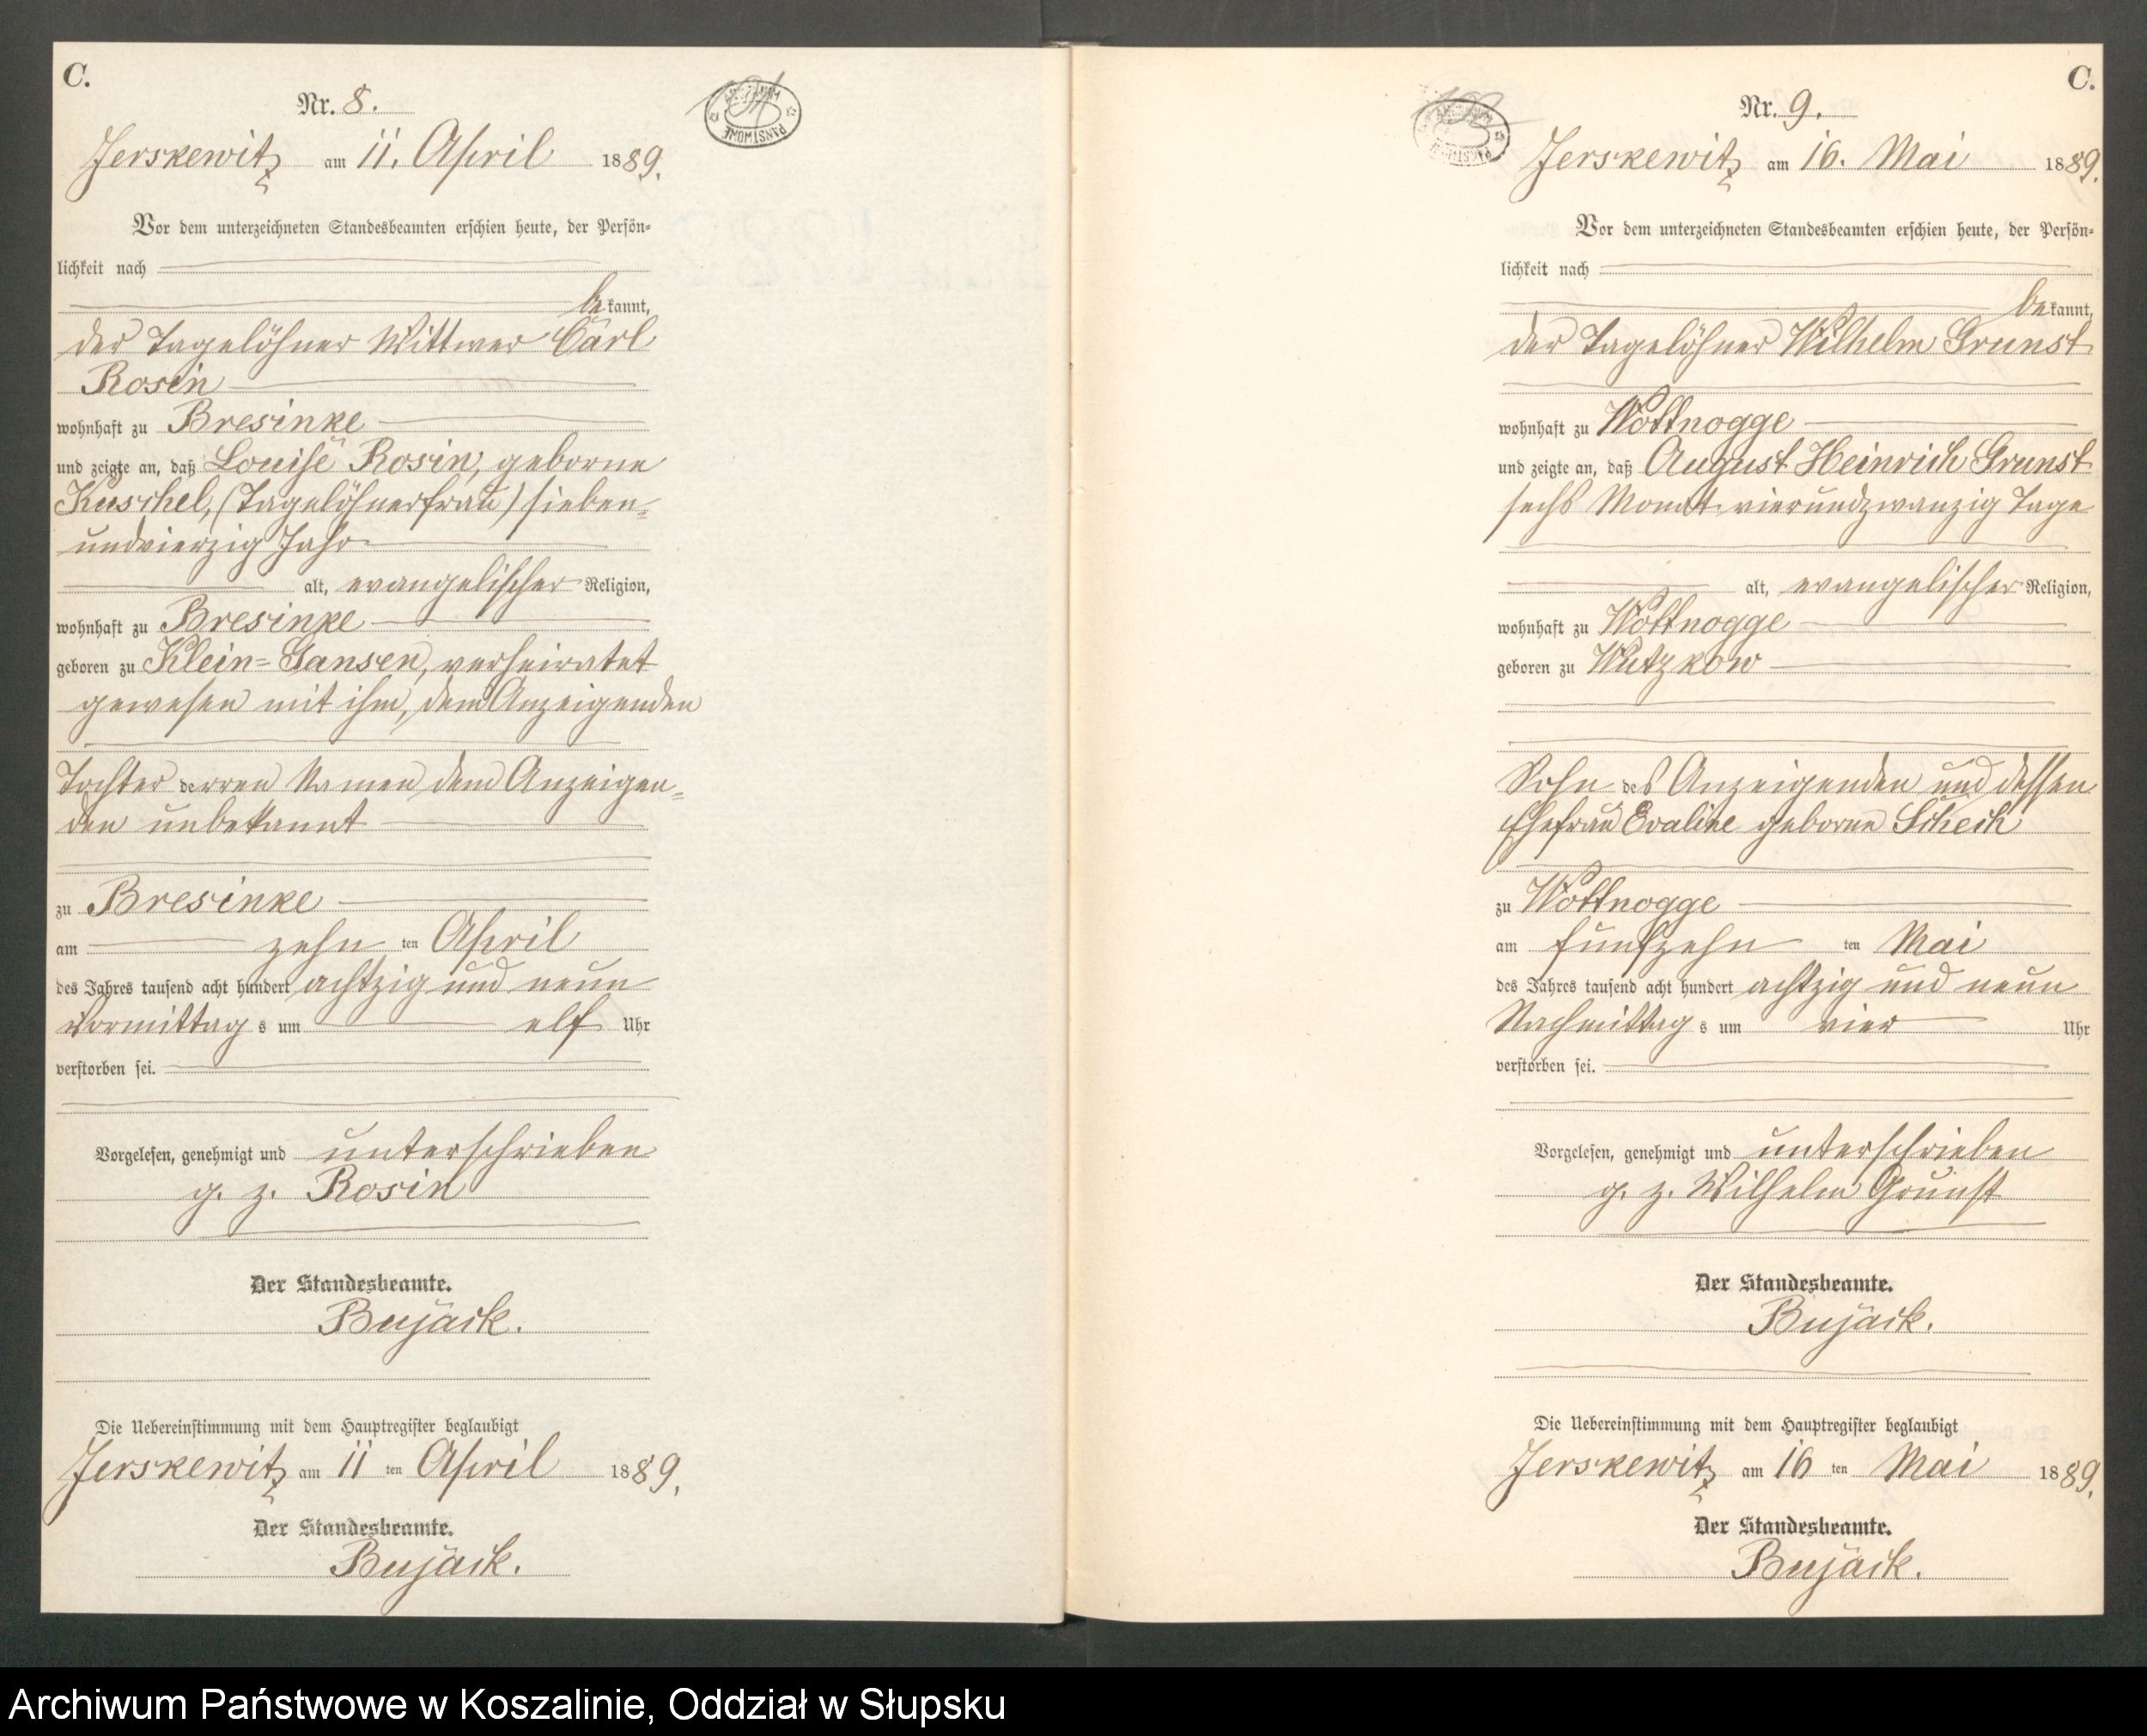 C.
Nr. 8.
Jerskewitz am 11. April 1889.
Vor dem unterzeichneten Standesbeamten erschien heute, der Persön-
lichkeit nach
bekannt,
der Tagelöhner Wittwer Carl
Rosin
wohnhaft zu Bresinke
und zeigte an, daß Louise Rosin, geborne
Kuschel, (Tagelöhnerfrau) sieben-
undvierzig Jahr
alt, evangelischer Religion,
wohnhaft zu Bresinke
geboren zu Klein=Gansen, verheiratet
gewesen mit ihm, dem Anzeigenden
Tochter derren Namen dem Anzeigen-
den unbekannt
zu Bresinke
am zehn ten April
des Jahres tausend acht hundert achtzig und neun
Vormittag s um elf Uhr
verstorben sei.
Vorgelesen, genehmigt und unterschrieben
g. z. Rosin
Der Standesbeamte.
Bujack.
Die Uebereinstimmung mit dem Hauptregister beglaubigt
Jerskewitz am 11 ten April 1889.
Der Standesbeamte.
Bujack.
ARCHIWUM PAŃSTWOWE
C.
Nr. 9.
Jerskewitz am 16. Mai 1889.
Vor dem unterzeichneten Standesbeamten erschien heute, der Persön-
lichkeit nach
bekannt,
der Tagelöhner Wilhelm Grunst
wohnhaft zu Wottnogge
und zeigte an, daß August Heinrich Grunst
sechs Monat vierundzwanzig Tage
alt, evangelischer Religion,
wohnhaft zu Wottnogge
geboren zu Wutzkow
Sohn des Anzeigenden und dessen
Ehefrau Evaline geborne Scheik
zu Wottnogge
am fünfzehn ten Mai
des Jahres tausend acht hundert achtzig und neun
Nachmittag s um vier Uhr
verstorben sei.
Vorgelesen, genehmigt und unterschrieben
g. z. Wilhelm Grunst
Der Standesbeamte.
Bujack.
Die Uebereinstimmung mit dem Hauptregister beglaubigt
Jerskewitz am 16 ten Mai 1889.
Der Standesbeamte.
Bujack.
Archiwum Państwowe w Koszalinie, Oddział w Słupsku